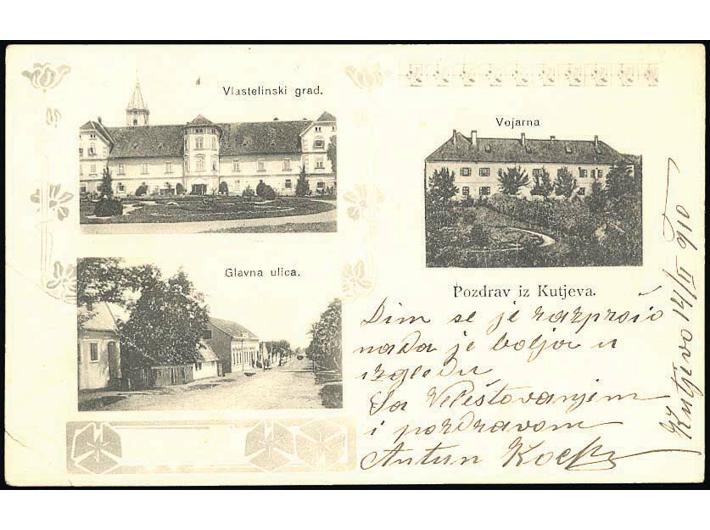 Vlastelinski grad.
Vojarna
Glavna ulica.
Pozdrav iz Kutjeva.
Dim se je razpršio
nada je bolja u
izgledu
Sa Velištovanjem
i pozdravom
Antun
Kutjevo 14/II 910